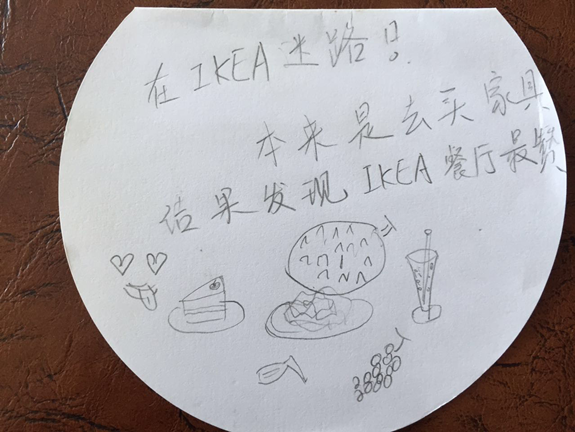 在IKEA迷路!
本来是去买家具
结果发现IKEA餐厅最赞